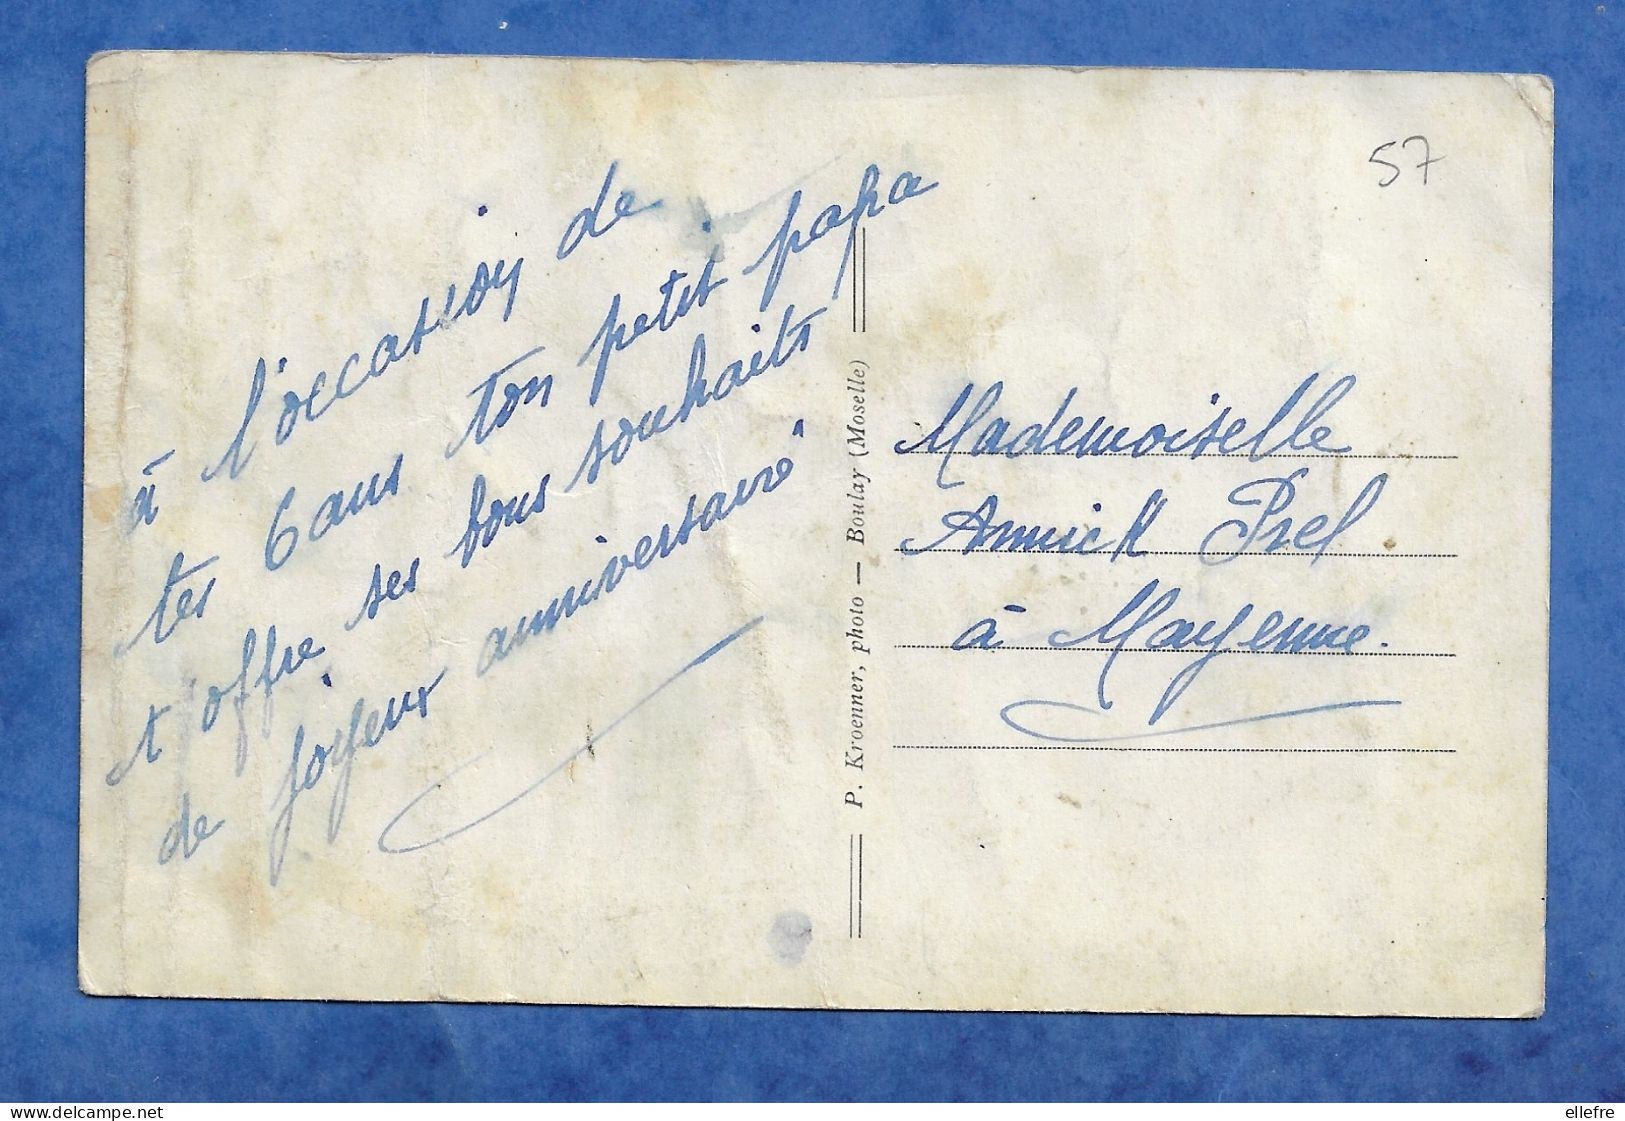 à l'occasion de
tes 6 ans ton petit papa
t offre ses bons souhaits
de joyeux anniversaire
P. Kroenner, photo — Boulay (Moselle)
57
Mademoiselle
Annick Prel
à Mayenne.
www.delcampe.net
ellefre